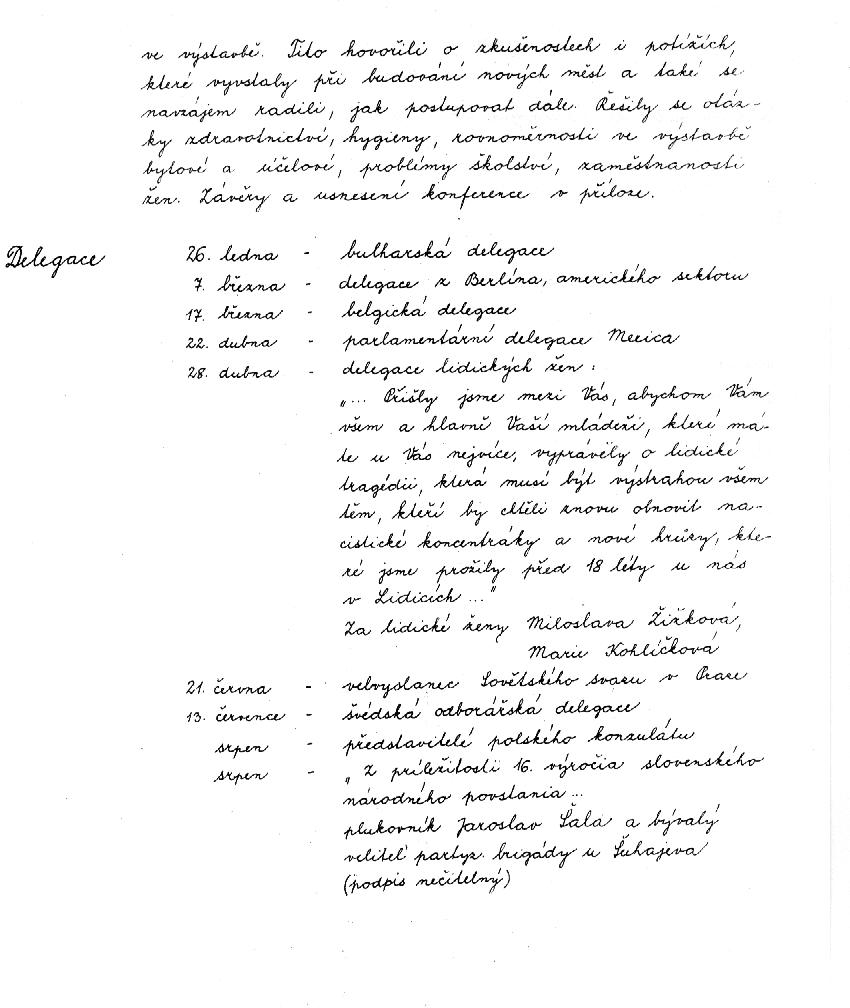 ve výstavbě. Tito hovořili o zkušenostech i potížích,
které vyvstaly při budování nových měst a také se
navzájem radili, jak postupovat dále. Řešily se otáz-
ky zdravotnictví, hygieny, rovnoměrnosti ve výstavbě
bytové a účelové, problémy školství, zaměstnanosti
žen. Závěry a usnesení konference v příloze.
Delegace
26. ledna - bulharská delegace
7. března - delegace z Berlína, amerického sektoru
17. března - belgická delegace
22. dubna - parlamentární delegace Mexica
28. dubna - delegace lidických žen:
„... Přišly jsme mezi Vás, abychom Vám
všem a hlavně Vaší mládeži, které má-
te u Vás nejvíce, vyprávěly o lidické
tragédii, která musí být výstrahou všem
těm, kteří by chtěli znovu obnovit na-
cistické koncentráky a nové hrůzy, kte-
ré jsme prožily před 18 léty u nás
v Lidicích ..."
Za lidické ženy Miloslava Žižková,
Marie Kohlíčková
21. června - velvyslanec Sovětského svazu v Praze
13. července - švédská odborářská delegace
srpen - představitelé polského konzulátu
srpen - „Z príležitosti 16. výročia slovenského
národného povstania ...
plukovník Jaroslav Šála a bývalý
veliteľ partyz. brigády u Šuhajeva
(podpis nečitelný)